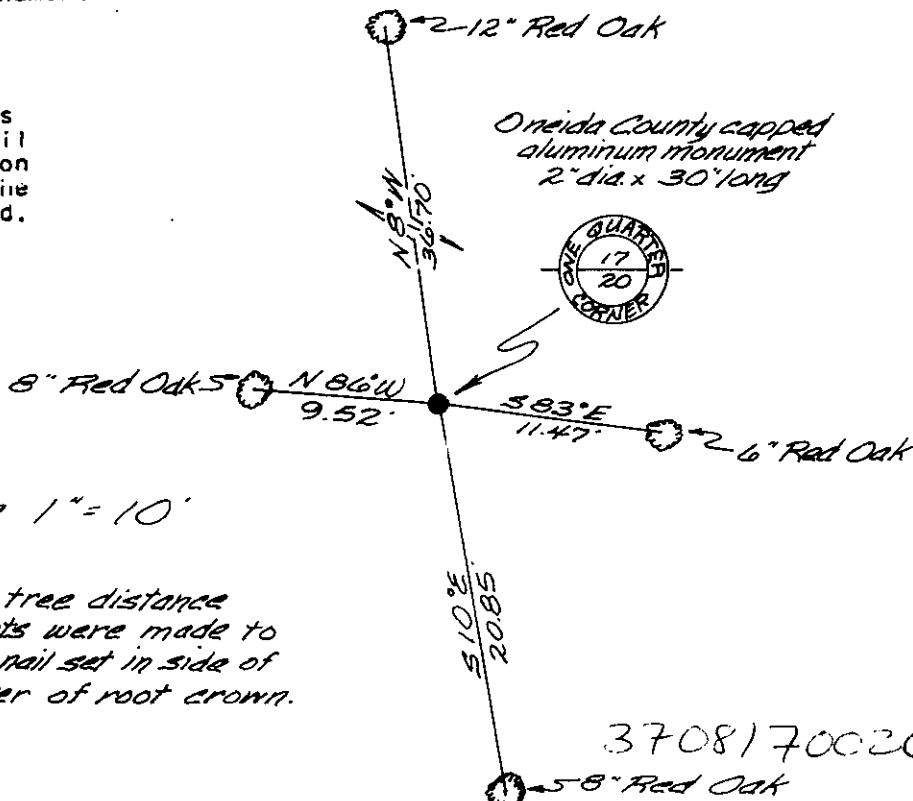 12" Red Oak
s
il
on
ile
d.
Oneida County capped
aluminum monument
2" dia. x 30" long
N 8° W
36.70'
ONE QUARTER
17
20
CORNER
8" Red Oak
N 86° W
9.52'
S 83° E
11.47'
6" Red Oak
1" = 10'
tree distance
ts were made to
nail set in side of
er of root crown.
S 10° E
20.85
3708170020
8" Red Oak